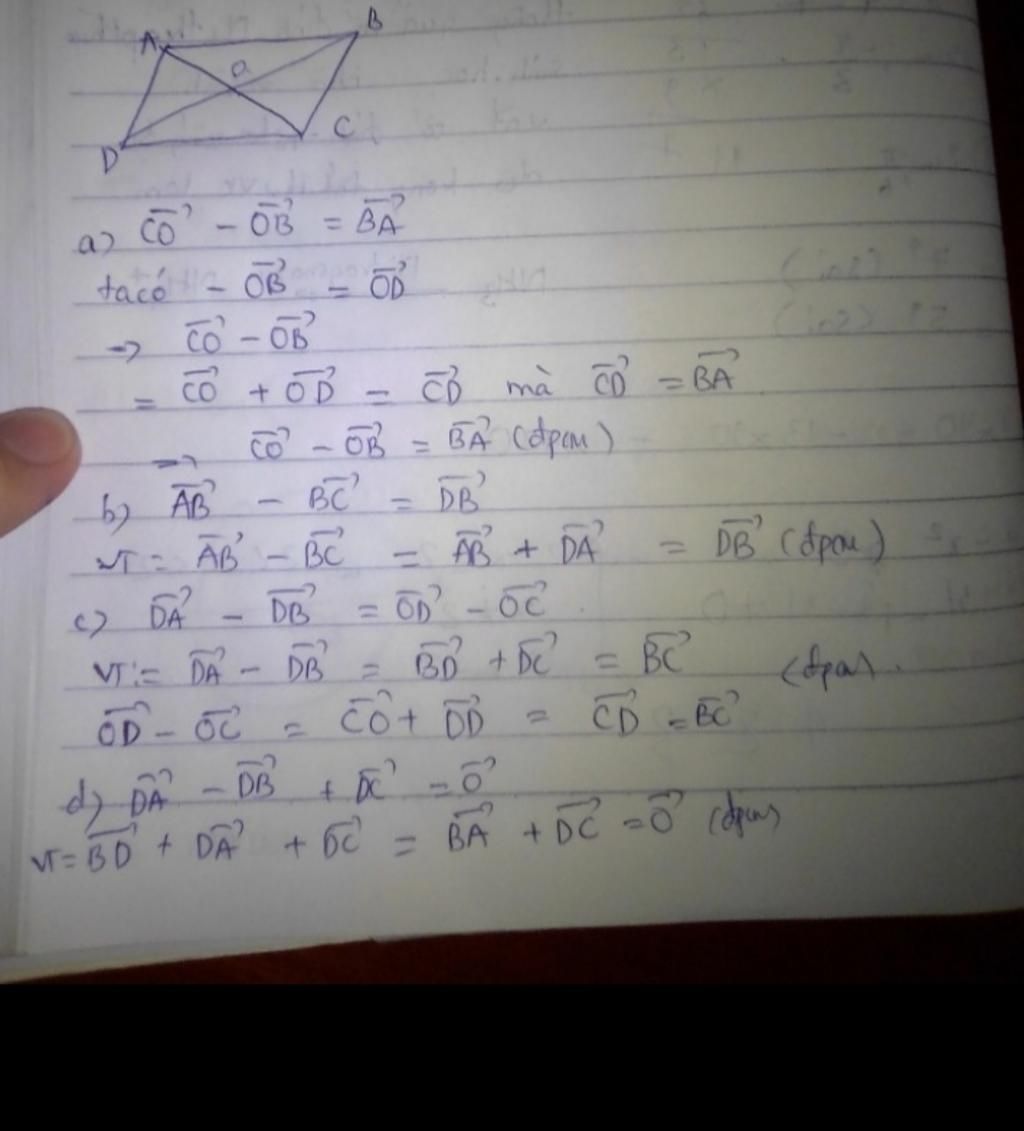 A B
O
D C
a) $\overrightarrow{CO} - \overrightarrow{OB} = \overrightarrow{BA}$
ta có $- \overrightarrow{OB} = \overrightarrow{OD}$
→ $\overrightarrow{CO} - \overrightarrow{OB}$
$= \overrightarrow{CO} + \overrightarrow{OD} = \overrightarrow{CD}$ mà $\overrightarrow{CD} = \overrightarrow{BA}$
→ $\overrightarrow{CO} - \overrightarrow{OB} = \overrightarrow{BA}$ (đpcm)
b) $\overrightarrow{AB} - \overrightarrow{BC} = \overrightarrow{DB}$
VT = $\overrightarrow{AB} - \overrightarrow{BC} = \overrightarrow{AB} + \overrightarrow{DA} = \overrightarrow{DB}$ (đpcm)
c) $\overrightarrow{DA} - \overrightarrow{DB} = \overrightarrow{OD} - \overrightarrow{OC}$
VT: = $\overrightarrow{DA} - \overrightarrow{DB} = \overrightarrow{BD} + \overrightarrow{DC} = \overrightarrow{BC}$ (đpcm).
$\overrightarrow{OD} - \overrightarrow{OC} = \overrightarrow{CO} + \overrightarrow{OD} = \overrightarrow{CD} = \overrightarrow{BC}$
d) $\overrightarrow{DA} - \overrightarrow{DB} + \overrightarrow{DC} = \overrightarrow{O}$
VT = $\overrightarrow{BD} + \overrightarrow{DA} + \overrightarrow{DC} = \overrightarrow{BA} + \overrightarrow{DC} = \overrightarrow{O}$ (đpcm)